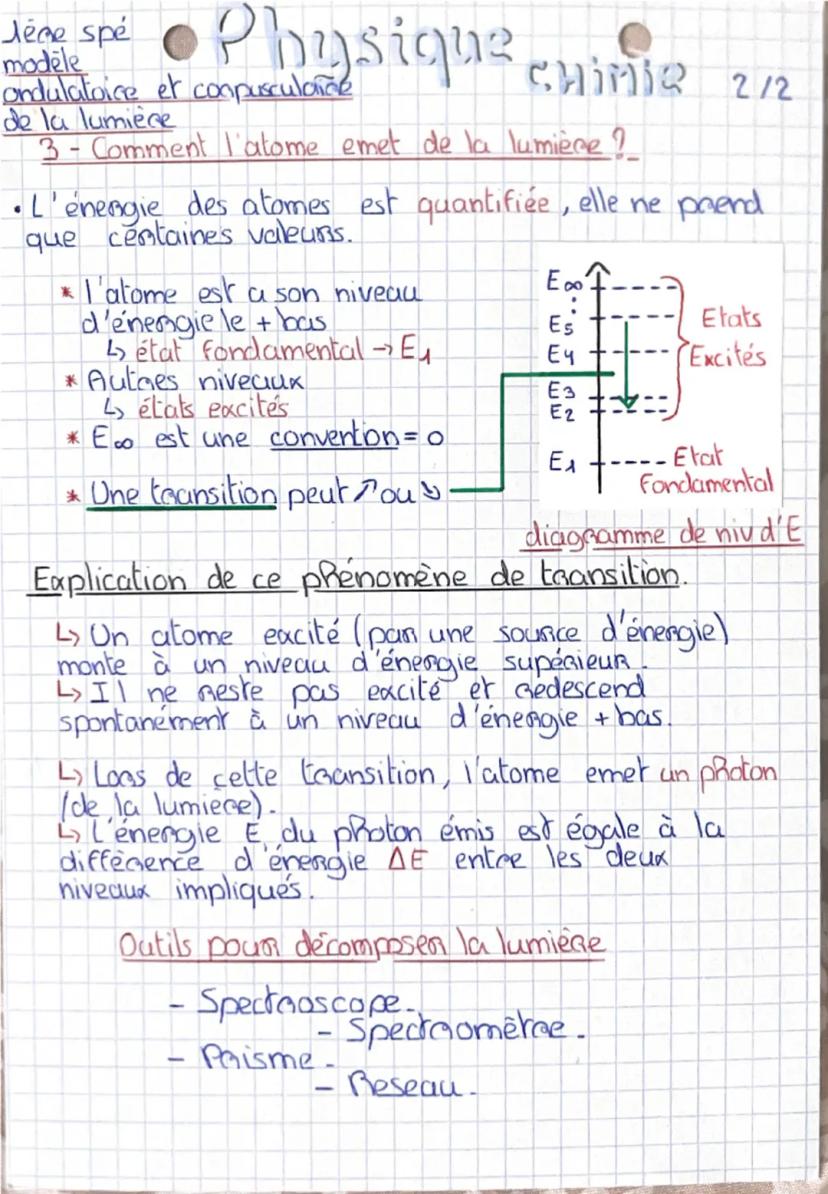 1ère spé
Physique chimie 2/2
modèle
ondulatoire et corpusculaire
de la lumière
3 - Comment l'atome emet de la lumière ?
• L'énergie des atomes est quantifiée, elle ne prend
que certaines valeurs.
* l'atome est a son niveau
d'énergie le + bas
↳ état fondamental → E1
* Autres niveaux
↳ états excités
* E∞ est une convention = 0
* Une transition peut ↗ ou ↘
E∞
E5
E4
E3
E2
E1
Etats
Excités
Etat
Fondamental
diagramme de niv d'E
Explication de ce phénomène de transition.
↳ Un atome excité (par une source d'énergie)
monte à un niveau d'énergie supérieur.
↳ Il ne reste pas excité et redescend
spontanément à un niveau d'énergie + bas.
↳ Lors de cette transition, l'atome emet un photon
(de la lumiere).
↳ L'énergie E, du photon émis est égale à la
différence d'énergie ΔE entre les deux
niveaux impliqués.
Outils pour décomposer la lumière
- Spectroscope.
- Spectromètre.
- Prisme.
- Reseau.